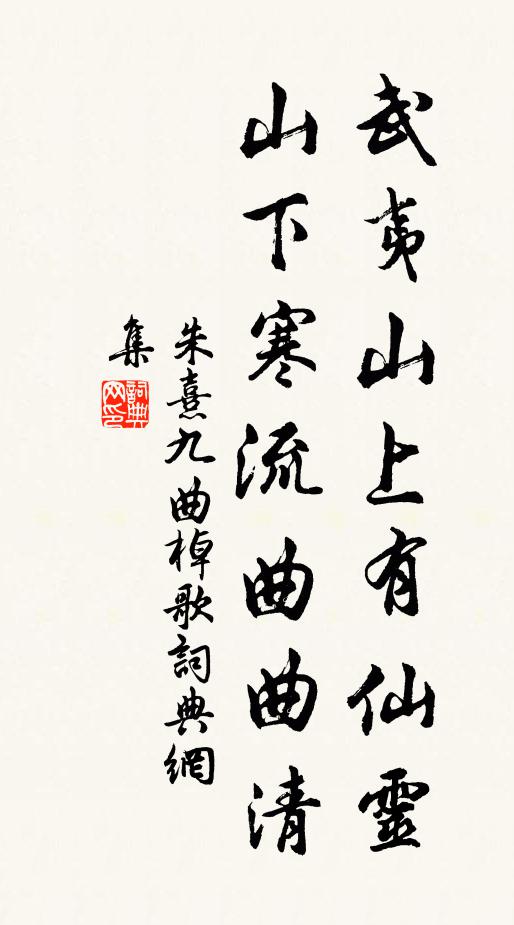 武夷山上有仙靈
山下寒流曲曲清
朱熹九曲棹歌詞典網
集
詞典網印